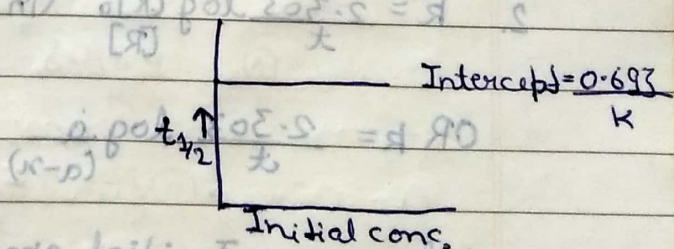 Intercept = 0.693/K
t1/2 ↑
Initial conc.